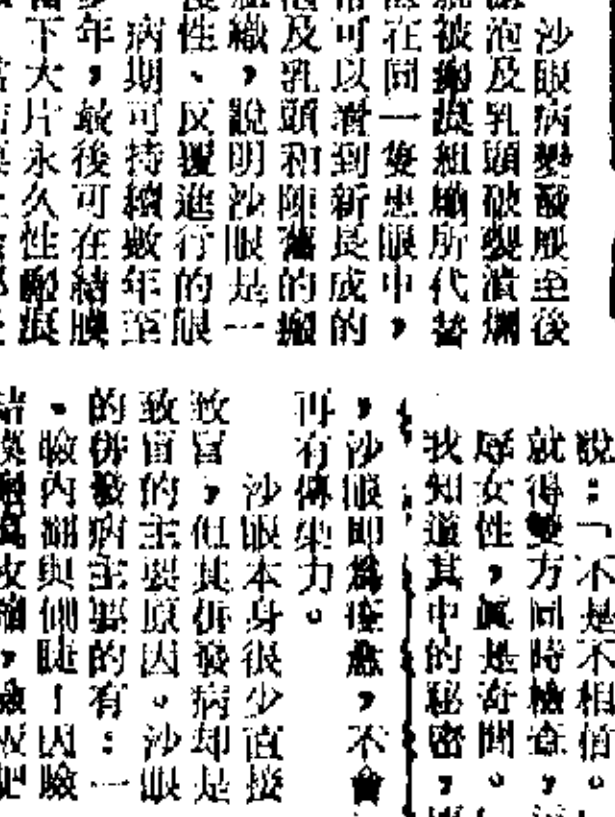 沙眼病變發展至後
泡及乳頭破裂潰爛
被瘢痕組織所代替
在同一隻患眼中，
可以看到新長成的
及乳頭和陳舊的瘢
織，說明沙眼是一
性、反覆進行的眼
病期可持續數年至
年，最後可在結膜
下大片永久性瘢痕
說：「不是不相信。
就得雙方同時檢查，
辱女性，真是奇聞。
我知道其中的秘密，
，沙眼即為痊癒，不會
再有傳染力。
沙眼本身很少直接
致盲，但其併發病却是
致盲的主要原因。沙眼
的併發病主要的有：一
、瞼內翻與倒睫！因瞼